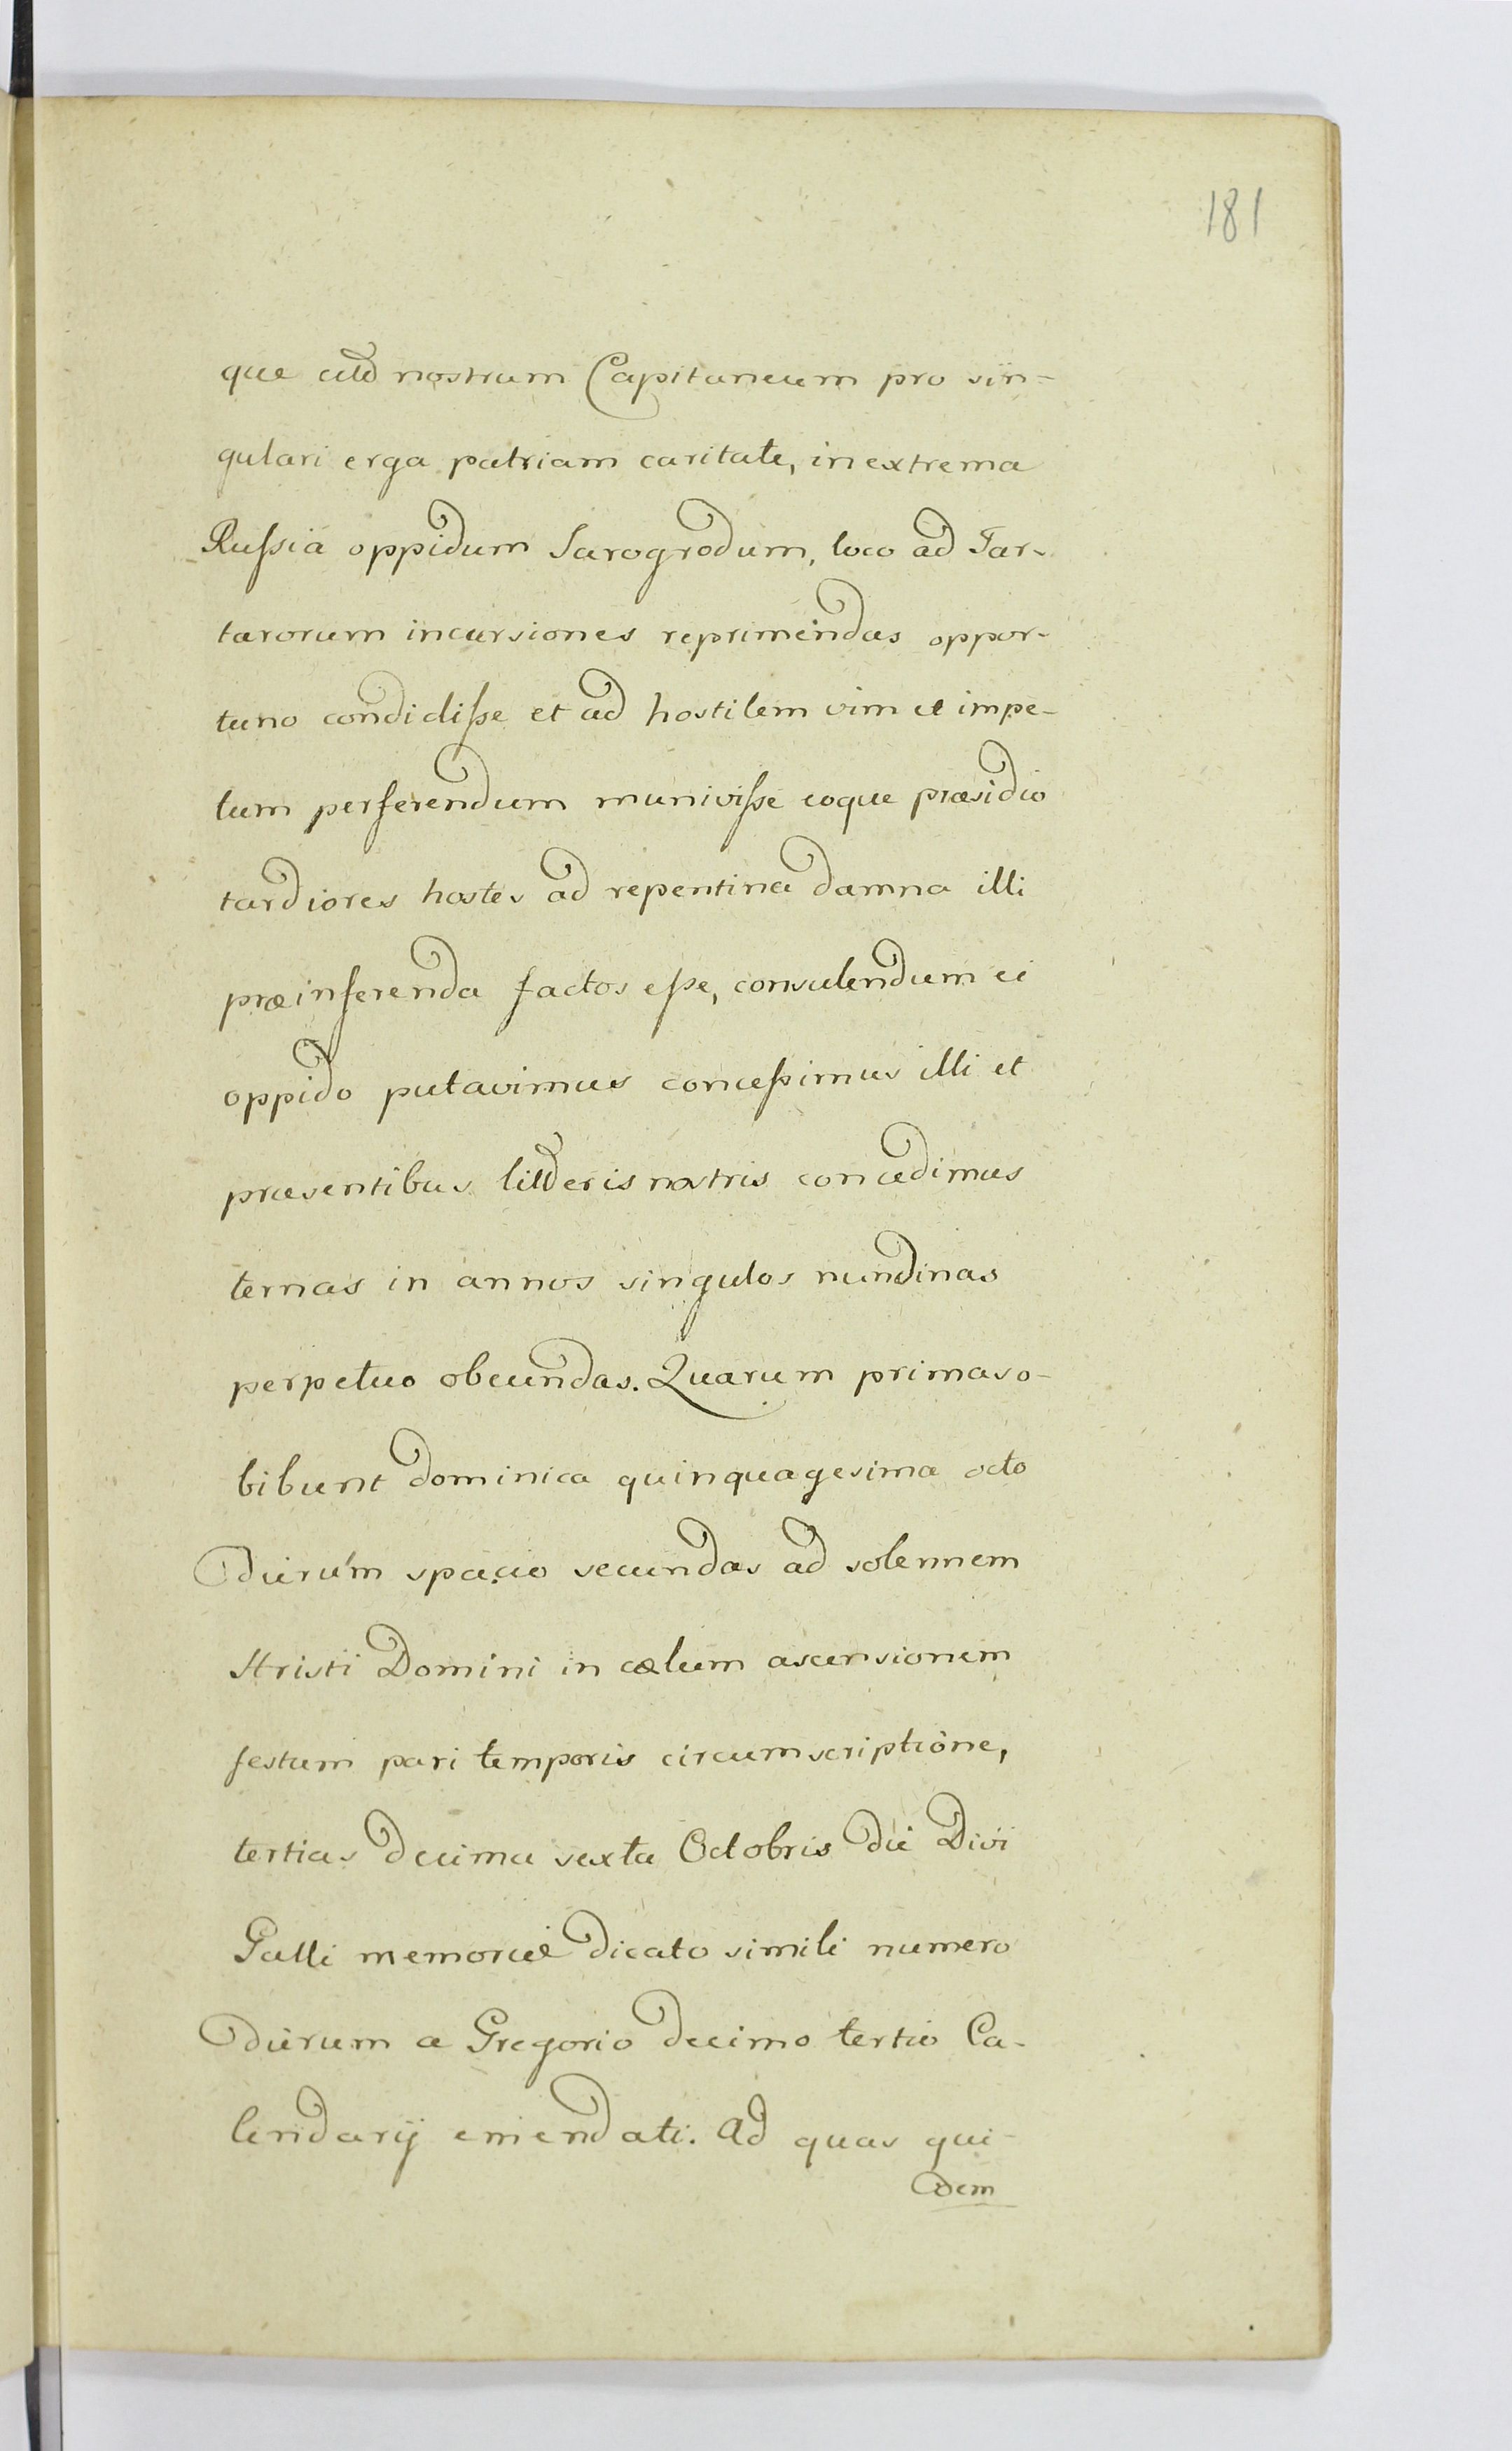 181
que nostrum Capitaneum pro sin-
gulari erga patriam caritate, in extrema
Russia oppidum Sarogrodum, loco ad Tar-
tarorum incursiones reprimendas oppor-
tuno condidisse et ad hostilem vim et impe-
tum perferendum munivisse eoque præsidio
tardiores hostes ad repentina damna illi
præinferenda factos esse, consulendum ei
oppido putavimus concessimus illi et
præsentibus litteris nostris concedimus
ternas in annos singulos nundinas
perpetuo obeundas. Quarum primas o-
bibunt dominica quinquagesima octo
dierum spacio secundas ad solemnem
Domini in cælum ascensionem
festum pari temporis circumscriptione,
tertias decima sexta Octobris die Divi
Galli memoriæ dicato simili numero
dierum a Gregorio decimo tertio Ca-
lendarij emendati. Ad quas qui-
dem